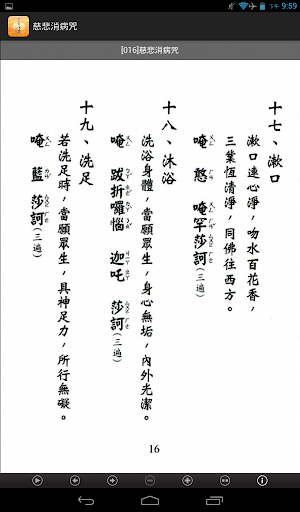 下午 9:59
慈悲消病咒
[016]慈悲消病咒
十七、漱口
漱口連心淨，吻水百花香，
三業恆清淨，同佛往西方。
唵 憨 唵罕莎訶(三遍)
十八、沐浴
洗浴身體，當願眾生，身心無垢，內外光潔。
唵 跋折囉惱 迦吒 莎訶(三遍)
十九、洗足
若洗足時，當願眾生，具神足力，所行無礙。
唵 藍 莎訶(三遍)
16